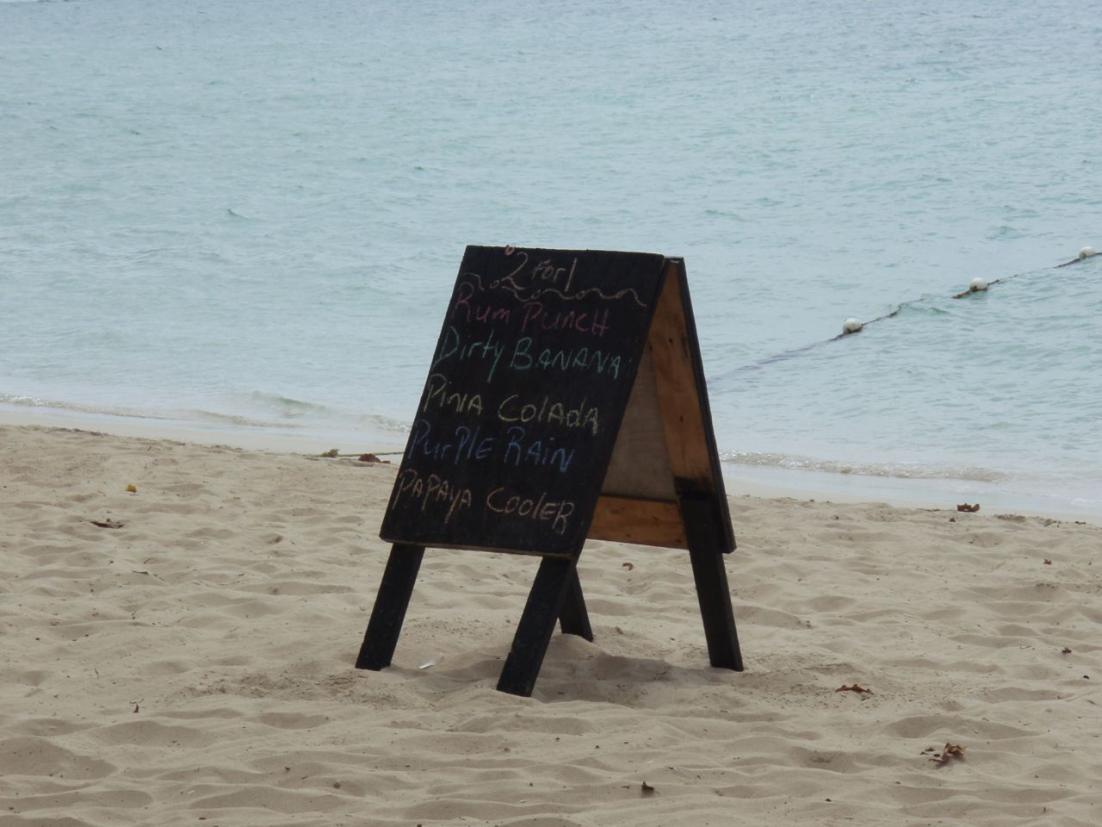 2 For 1
Rum Punch
Dirty BANANA
Pina Colada
PurPle Rain
PAPAYA COOLER